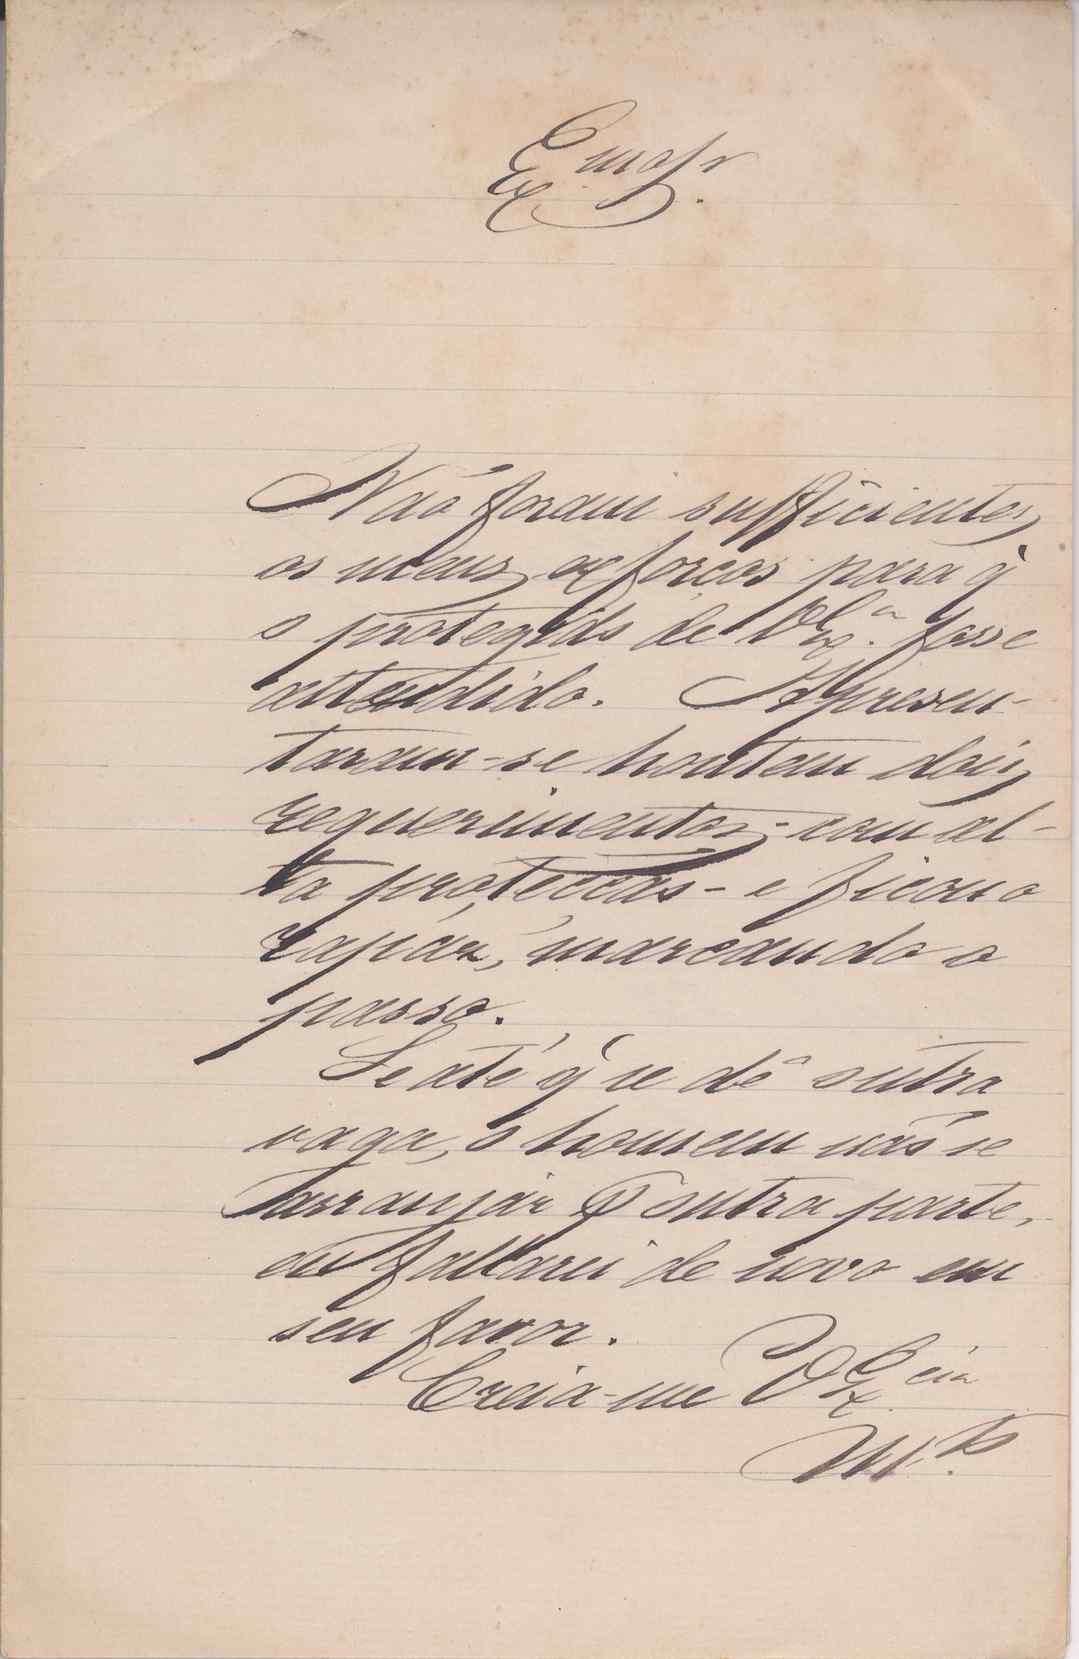 Exmo Sr.
Não foram sufficientes
os meus exforços para q̀
o protegido de V Ex.ª fosse
attendido. Apresen-
taram-se hontem dois
requerimentos - com al-
ta protecção - e ficou o
rapáz, marcando o
passo.
Se até q̀ se dê outra
vaga, o homem não se
arranjár outra parte,
eu fallarei de novo em
seu favor.
Creia-me V Ex.cia
M.to